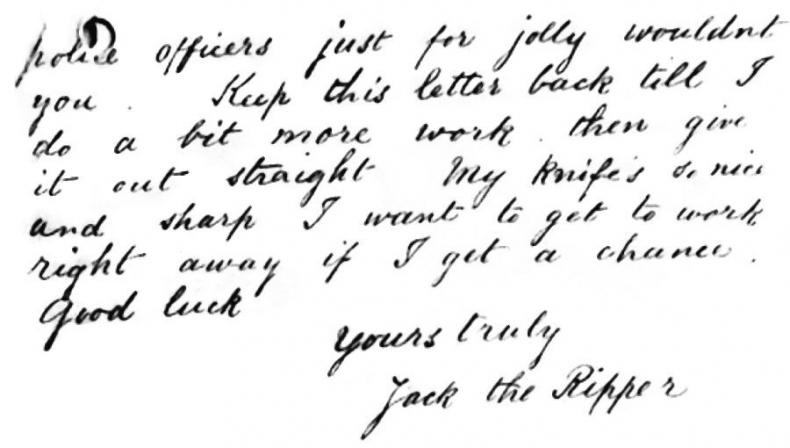 police officers just for jolly wouldnt
you . Keep this letter back till I
do a bit more work . then give
it out straight My knife's so nice
and sharp I want to get to work
right away if I get a chance .
Good luck
Yours truly
Jack the Ripper